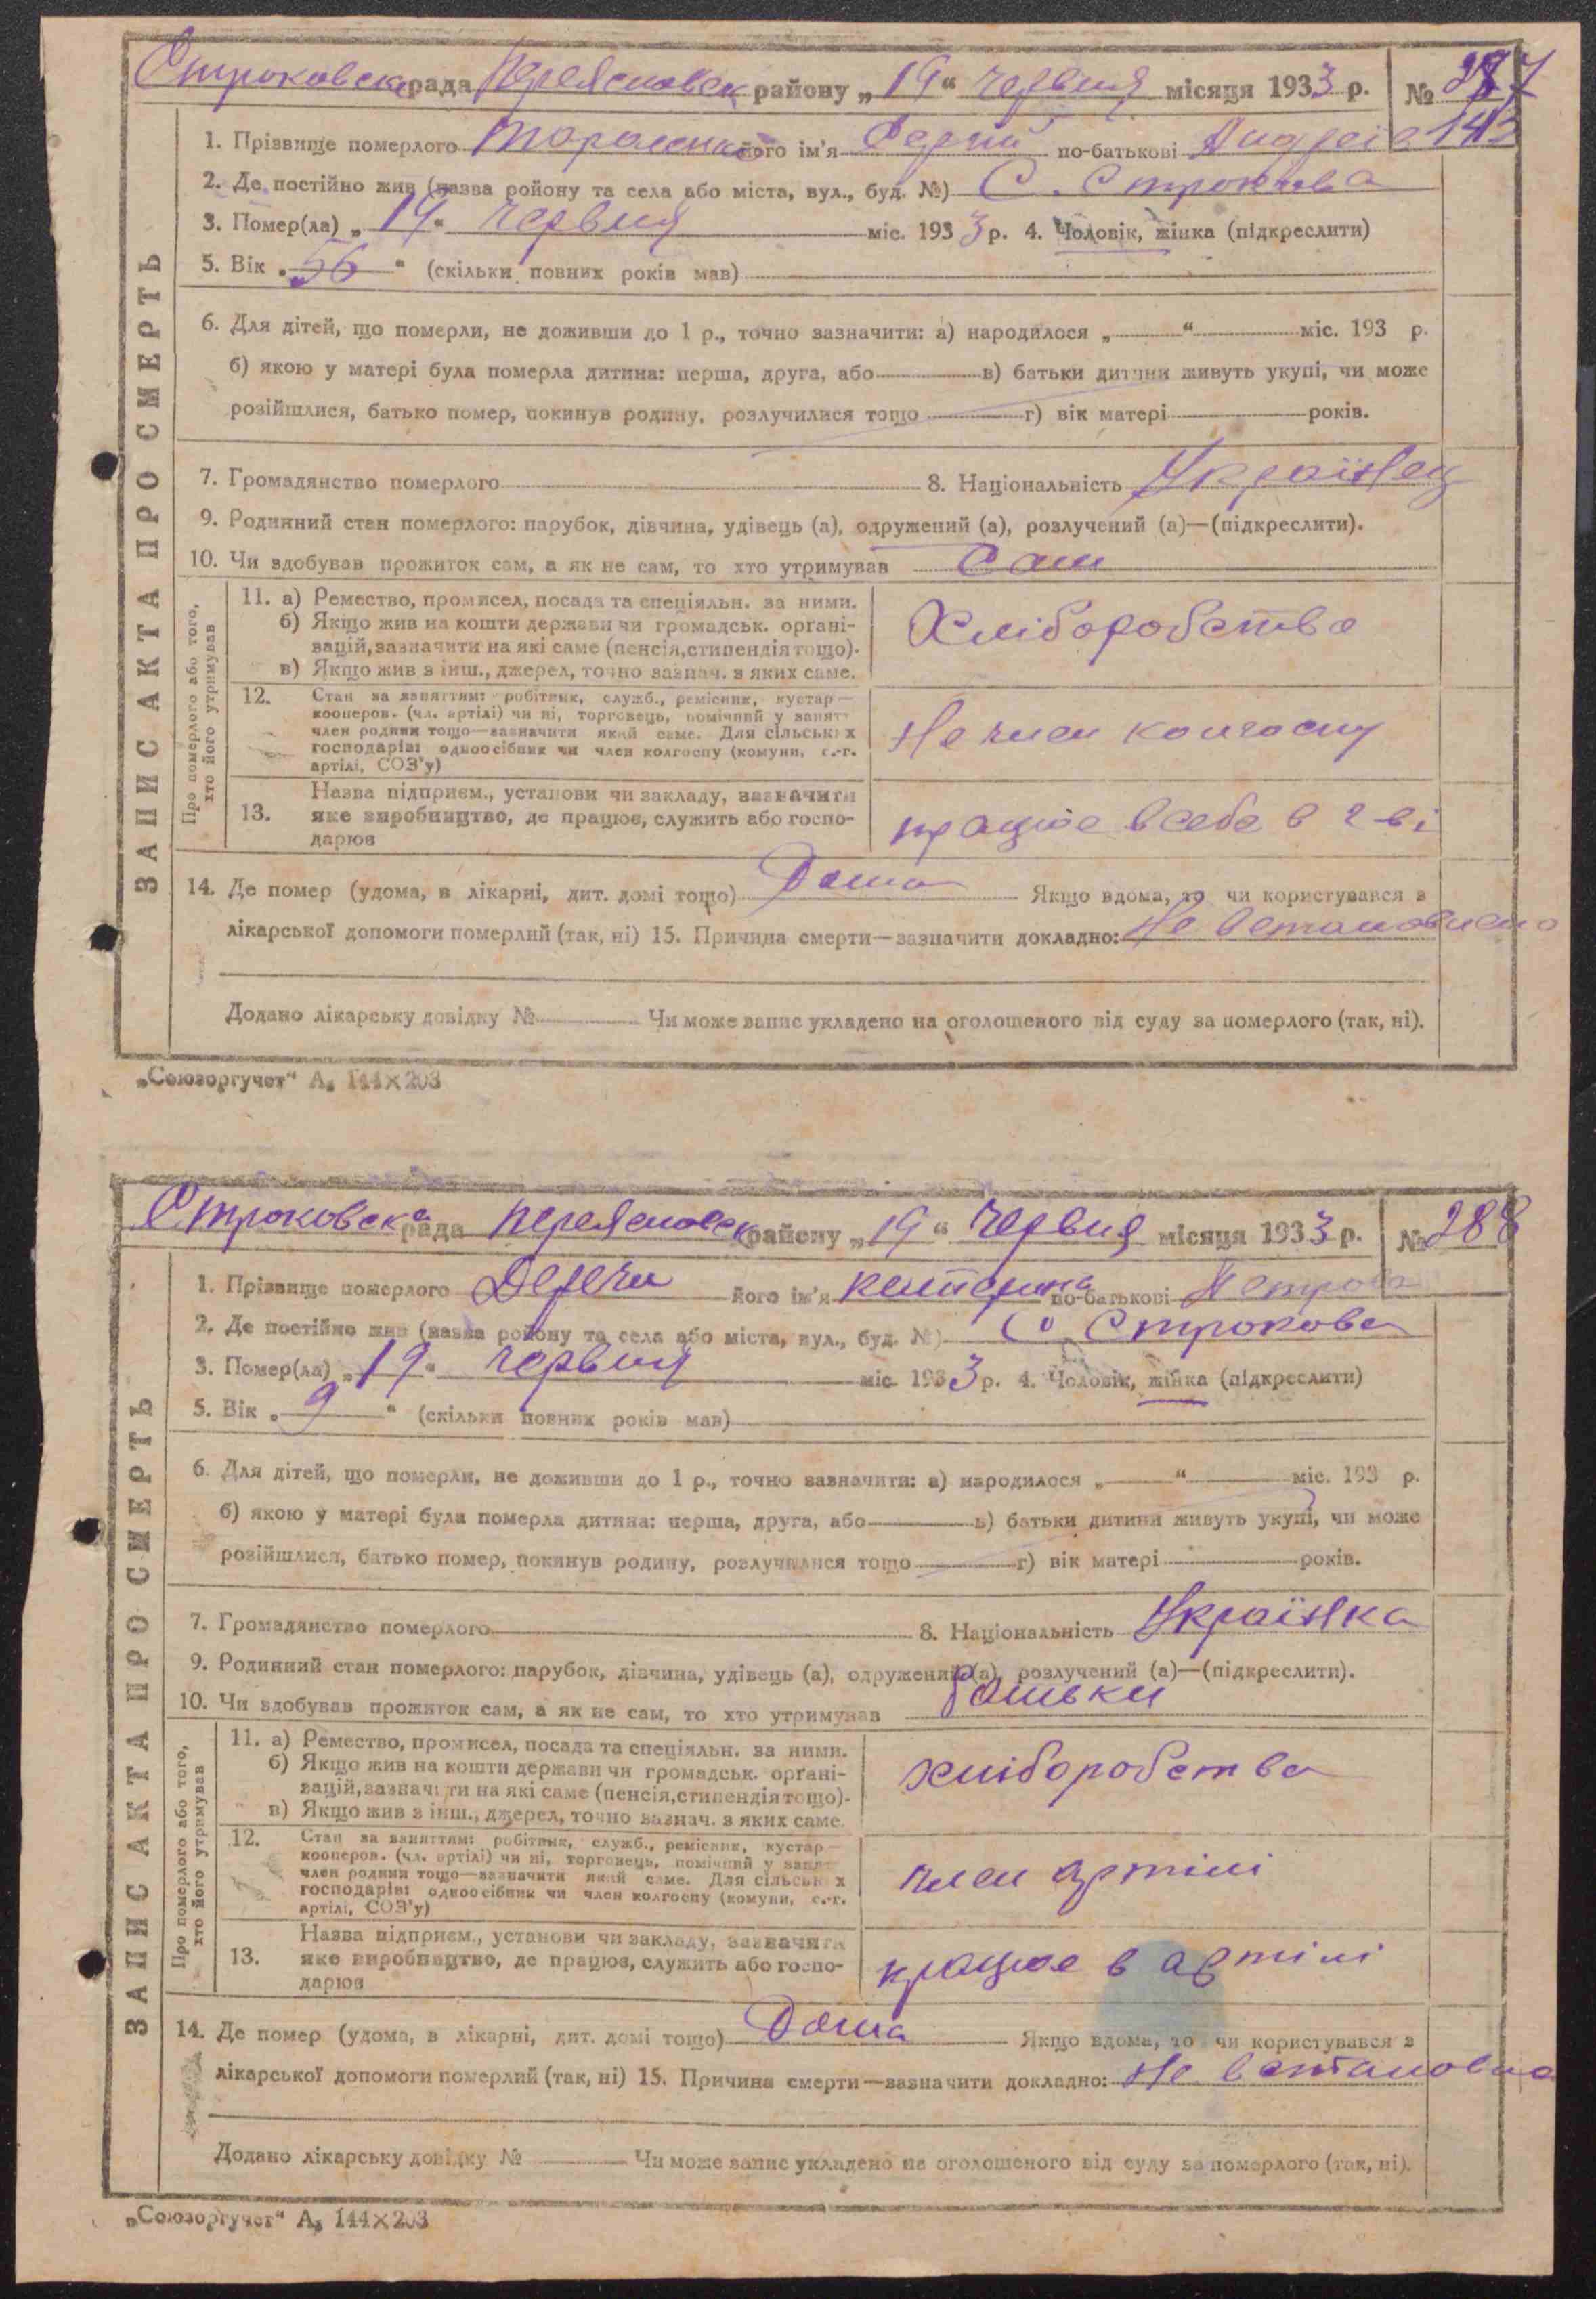 Строковска рада Переяславск району „19“ червня місяця 1933 р. № 287
143
1. Прізвище померлого його ім'я Сергій по-батькові Андреів
2. Де постійно жив (назва ройону та села або міста, вул., буд. №) С. Строкова
3. Помер(ла) „19“ червня міс. 1933 р. 4. Чоловік, жінка (підкреслити)
5. Вік „56“ (скільки повних років мав)
6. Для дітей, що померли, не доживши до 1 р., точно зазначити: а) народилося „ “ міс. 193 р.
б) якою у матері була померла дитина: перша, друга, або в) батьки дитини живуть укупі, чи може
розійшлися, батько помер, покинув родину, розлучилися тощо г) вік матері років.
7. Громадянство померлого 8. Національність Українец
9. Родинний стан померлого: парубок, дівчина, удівець (а), одружений (а), розлучений (а)—(підкреслити).
10. Чи здобував прожиток сам, а як не сам, то хто утримував Сам
ЗАПИС АКТА ПРО СМЕРТЬ
Про померлого або того, хто його утримував
11. а) Ремество, промисел, посада та спеціяльн. за ними.
б) Якщо жив на кошти держави чи громадськ. органі-
зацій, зазначити на які саме (пенсія, стипендія тощо).
в) Якщо жив з інш., джерел, точно зазнач. з яких саме.
Хліборобства
12. Стан за заняттям: робітник, служб., ремісник, кустар—
кооперов. (чл. артілі) чи ні, торговець, помічний у занят
член родини тощо—зазначити який саме. Для сільських
господарів: одноосібник чи член колгоспу (комуни, с.-г.
артілі, СОЗ'у)
Не член колгоспу
13. Назва підприєм., установи чи закладу, зазначити
яке виробництво, де працює, служить або госпо-
дарює
працює в себе в
14. Де помер (удома, в лікарні, дит. домі тощо) Дома Якщо вдома, то чи користувався з
лікарської допомоги померлий (так, ні) 15. Причина смерти—зазначити докладно: Не встановлено
Додано лікарську довідку № Чи може запис укладено на оголошеного від суду за померлого (так, ні).
„Союзоргучет“ А₅ 144×203
Строковска рада Переяславск району „19“ червня місяця 1933 р. № 288
1. Прізвище померлого його ім'я по-батькові Петрова
2. Де постійно жив (назва ройону та села або міста, вул., буд. №) С. Строкова
3. Помер(ла) „19“ червня міс. 1933 р. 4. Чоловік, жінка (підкреслити)
5. Вік „9“ (скільки повних років мав)
6. Для дітей, що померли, не доживши до 1 р., точно зазначити: а) народилося „ “ міс. 193 р.
б) якою у матері була померла дитина: перша, друга, або в) батьки дитини живуть укупі, чи може
розійшлися, батько помер, покинув родину, розлучилися тощо г) вік матері років.
7. Громадянство померлого 8. Національність Українка
9. Родинний стан померлого: парубок, дівчина, удівець (а), одружений (а), розлучений (а)—(підкреслити).
10. Чи здобував прожиток сам, а як не сам, то хто утримував батьки
ЗАПИС АКТА ПРО СМЕРТЬ
Про померлого або того, хто його утримував
11. а) Ремество, промисел, посада та спеціяльн. за ними.
б) Якщо жив на кошти держави чи громадськ. органі-
зацій, зазначити на які саме (пенсія, стипендія тощо).
в) Якщо жив з інш., джерел, точно зазнач. з яких саме.
хліборобства
12. Стан за заняттям: робітник, служб., ремісник, кустар—
кооперов. (чл. артілі) чи ні, торговець, помічний у занят
член родини тощо—зазначити який саме. Для сільських
господарів: одноосібник чи член колгоспу (комуни, с.-г.
артілі, СОЗ'у)
член артілі
13. Назва підприєм., установи чи закладу, зазначити
яке виробництво, де працює, служить або госпо-
дарює
працює в артілі
14. Де помер (удома, в лікарні, дит. домі тощо) Дома Якщо вдома, то чи користувався з
лікарської допомоги померлий (так, ні) 15. Причина смерти—зазначити докладно: Не
Додано лікарську довідку № Чи може запис укладено на оголошеного від суду за померлого (так, ні).
„Союзоргучет“ А₅ 144×203